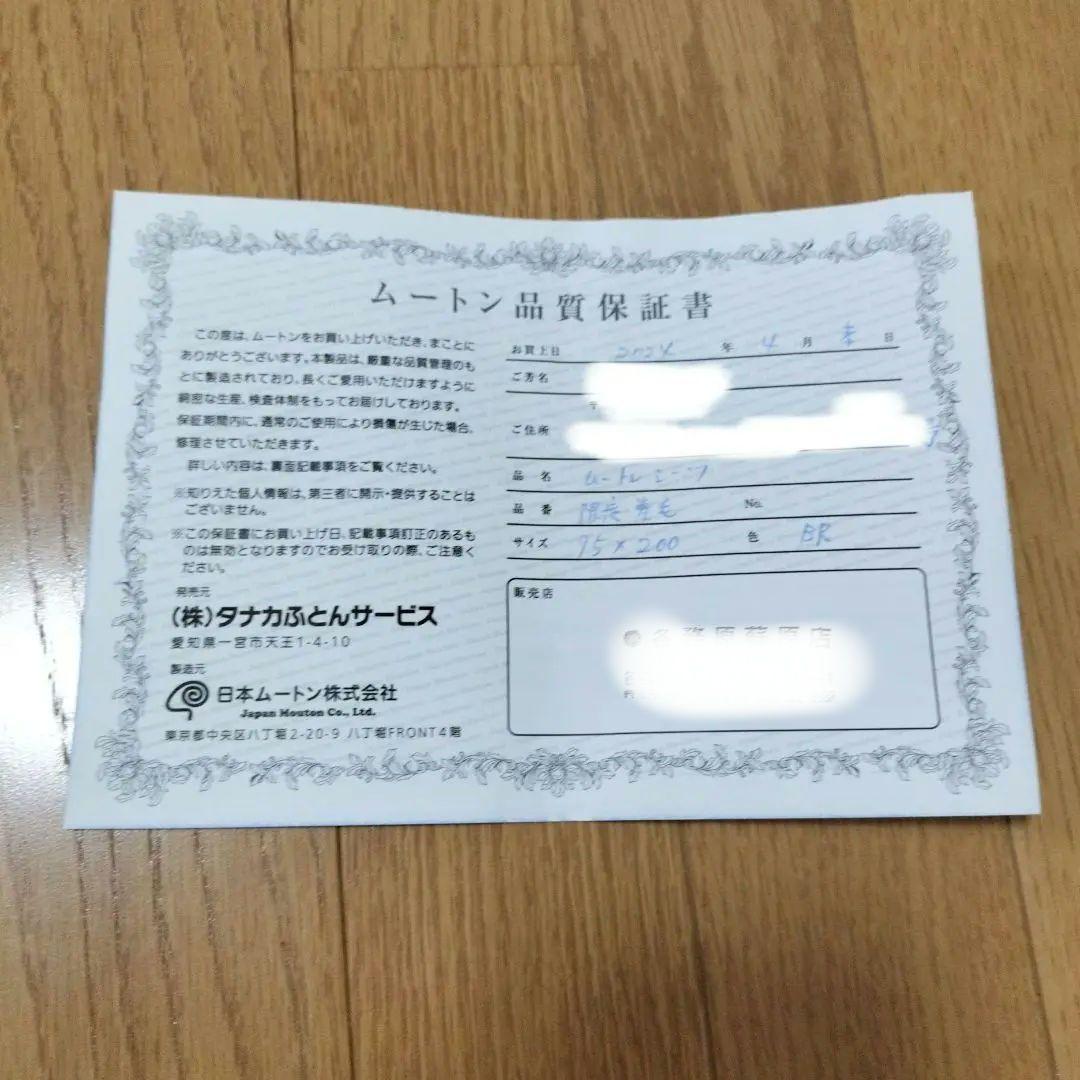 ムートン品質保証書
この度は、ムートンをお買い上げいただき、まことに
ありがとうございます。本製品は、厳重な品質管理のも
とに製造されており、長くご愛用いただけますように
綿密な生産、検査体制をもってお届けしております。
保証期間内に、通常のご使用により損傷が生じた場合、
修理させていただきます。
詳しい内容は、裏面記載事項をご覧ください。
※知りえた個人情報は、第三者に開示・提供することは
ございません。
※この保証書にお買い上げ日、記載事項訂正のあるも
のは無効となりますのでお受け取りの際、ご注意く
ださい。
発売元
(株)タナカふとんサービス
愛知県一宮市天王1-4-10
製造元
日本ムートン株式会社
Japan Mouton Co., Ltd.
東京都中央区八丁堀2-20-9 八丁堀FRONT4階
お買上日 2024 年 4 月 末 日
ご芳名
〒
ご住所
品名 ムートンシーツ
品番 No.
サイズ 95×200 色 BR
販売店